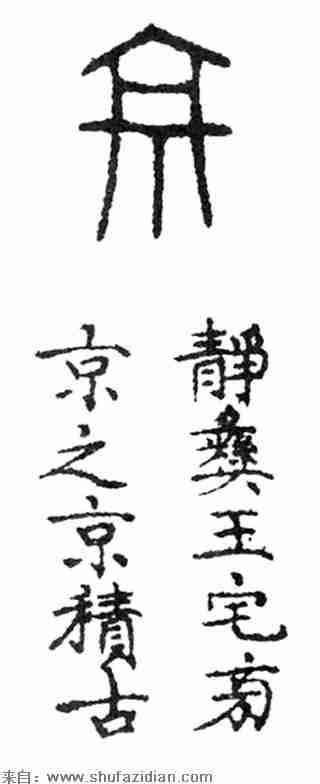 京
靜彝王宅旁
京之京積古
来自：www.shufazidian.com